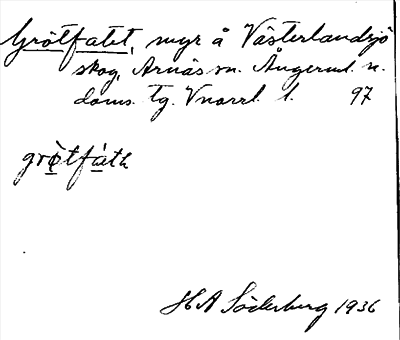 Grötfatet, myr å Västerlandsjö
skog, Arnäs sn. Ångerml. n.
doms. Tg. Vnorrl. l. 97
grötfatə
HA Söderberg 1936